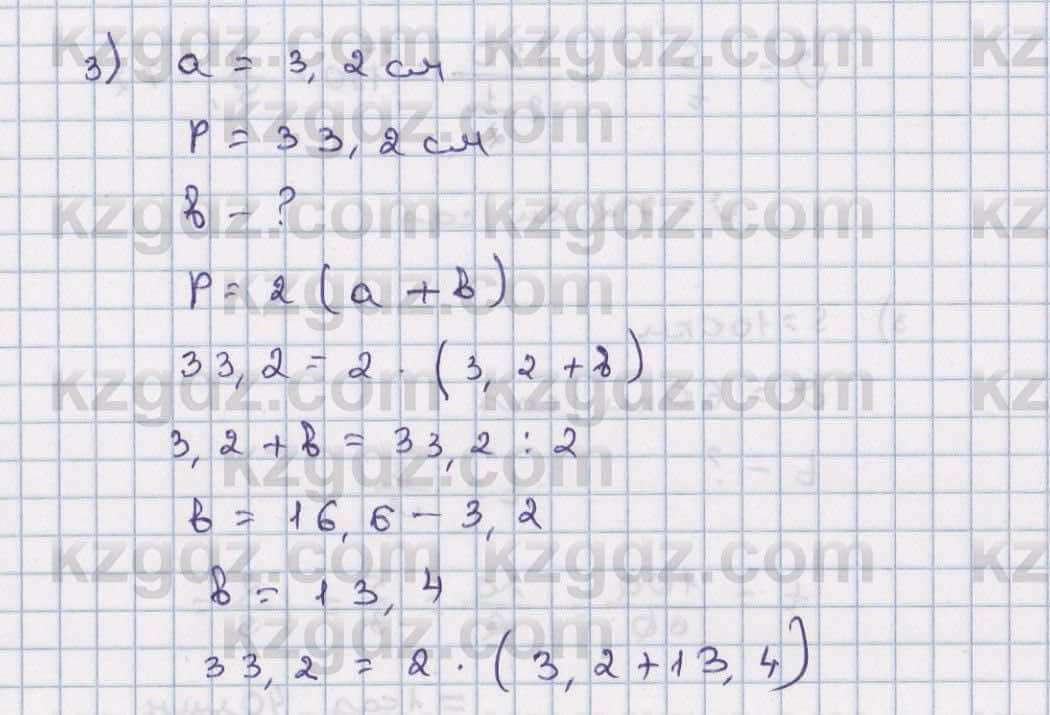 3) a = 3,2 см
P = 33,2 см
в - ?
P = 2 (a + в)
33,2 = 2 · (3,2 + в)
3,2 + в = 33,2 : 2
в = 16,6 - 3,2
в = 13,4
33,2 = 2 · (3,2 + 13,4)
kzgdz.com kzgdz.com kz
kzgdz.com
kzgdz.com kzgdz.com kz
kzgdz.com
kzgdz.com kzgdz.com kz
kzgdz.com
kzgdz.com kzgdz.com kz
kzgdz.com